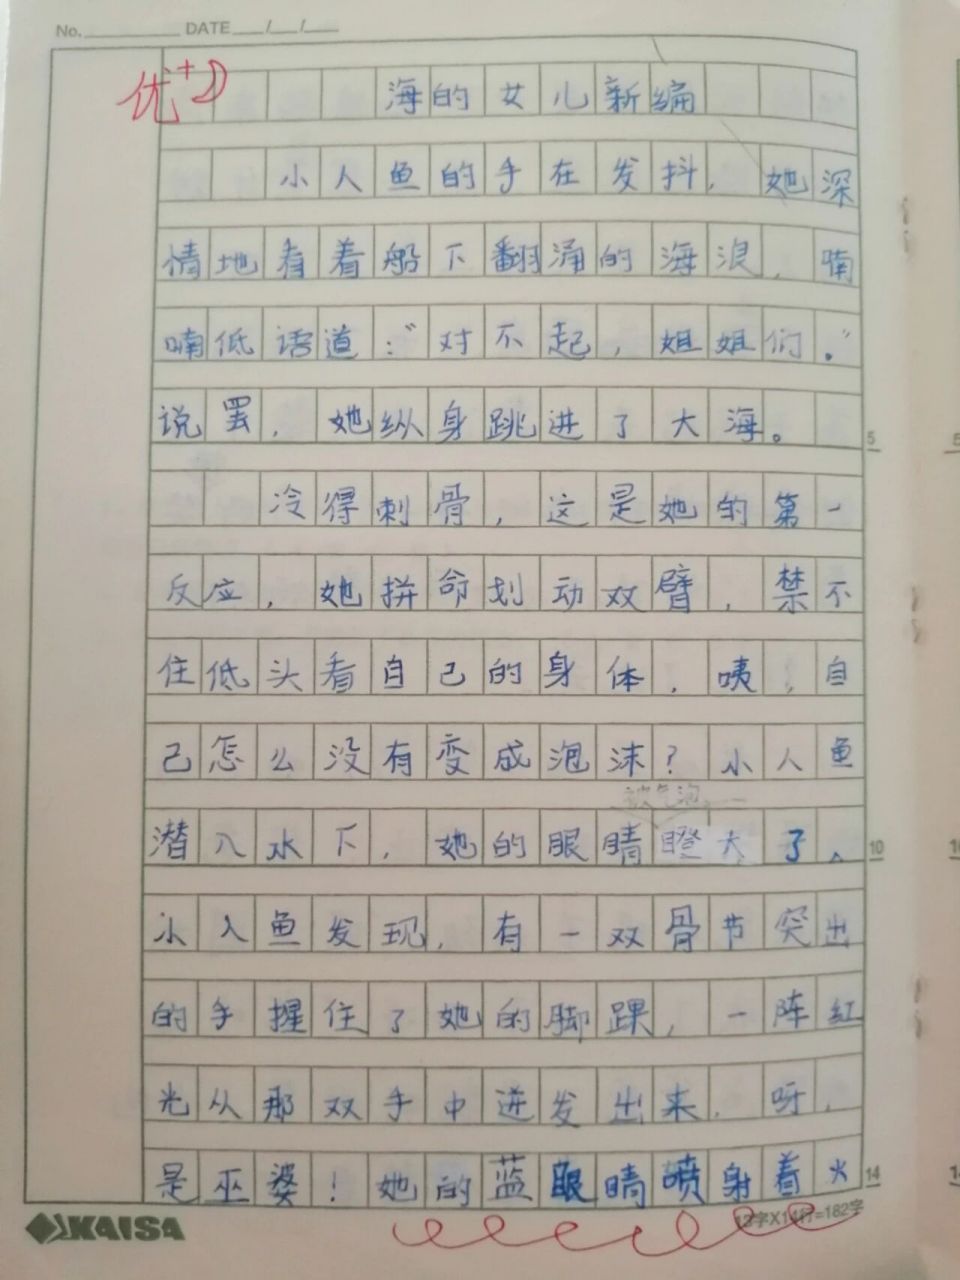 No. DATE / /
优+
海的女儿新编
小人鱼的手在发抖，她深
情地看着船下翻涌的海浪，喃
喃低语道：“对不起，姐姐们。”
说罢，她纵身跳进了大海。
5
冷得刺骨，这是她的第一
反应，她拼命划动双臂，禁不
住低头看自己的身体，咦，自
己怎么没有变成泡沫？小人鱼
被气泡
潜入水下，她的眼睛瞪大了、
10
小人鱼发现，有一双骨节突出
的手握住了她的脚踝，一阵红
光从那双手中迸发出来，呀，
是巫婆！她的蓝眼睛喷射着火
14
KAISA
13字X14行=182字